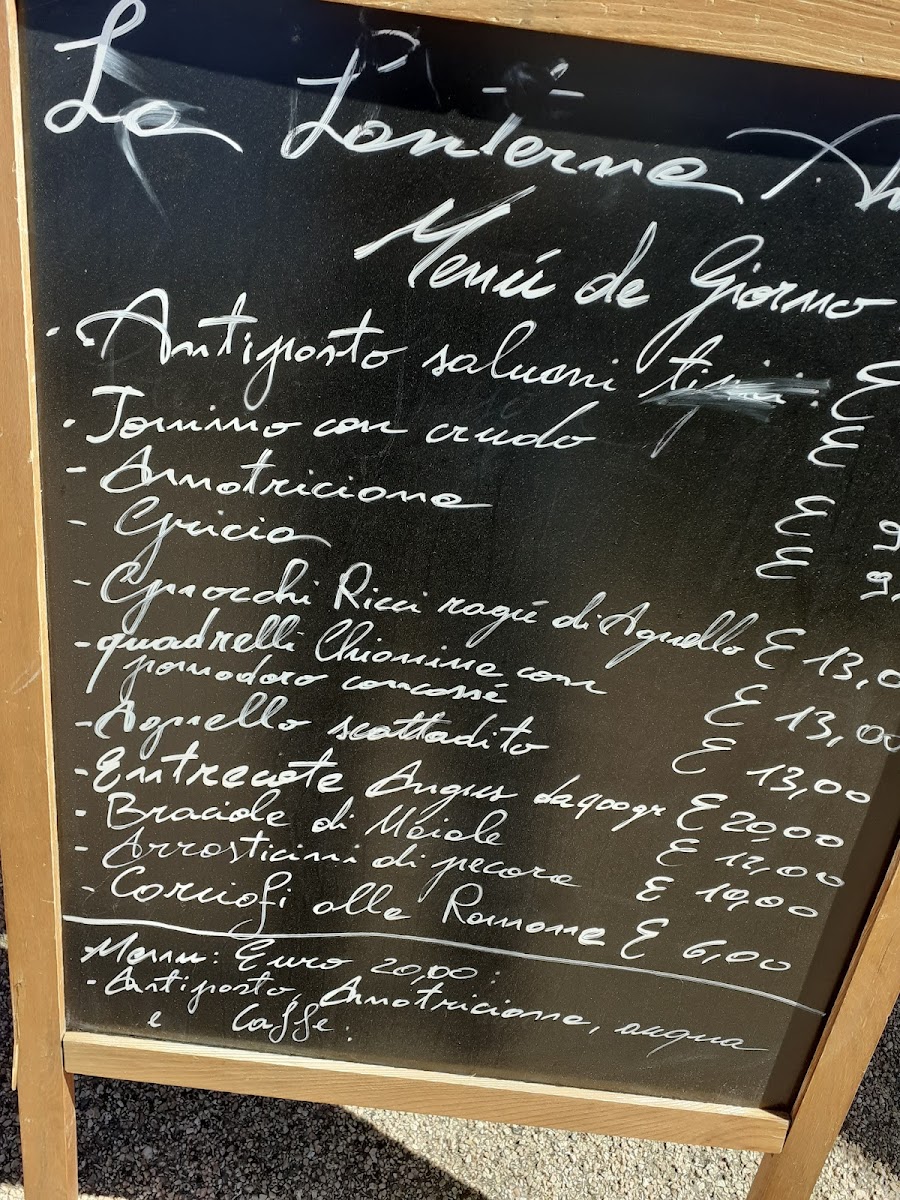 La Lanterna
Menú de Giorno
· Antiposto salumi tipici: E
· Tomino con crudo E
- Amatriciana E 9
- Gricia E 9,
- Gnocchi Ricci ragú di Agnello E 13,0
- quadrelli Chianina con E 13,00
pomodoro concassé
- Agnello scottadito E 13,00
- Entrecote Angus da 400gr E 20,00
- Braciole di Maiale E 12,00
- Arrosticini di pecora E 10,00
- Corciofi alla Romana E 6,00
Menu: Euro 20,00:
- Antiposto, Amatriciana, acqua
e Caffe.